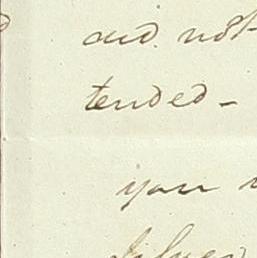 and not
tended -
you